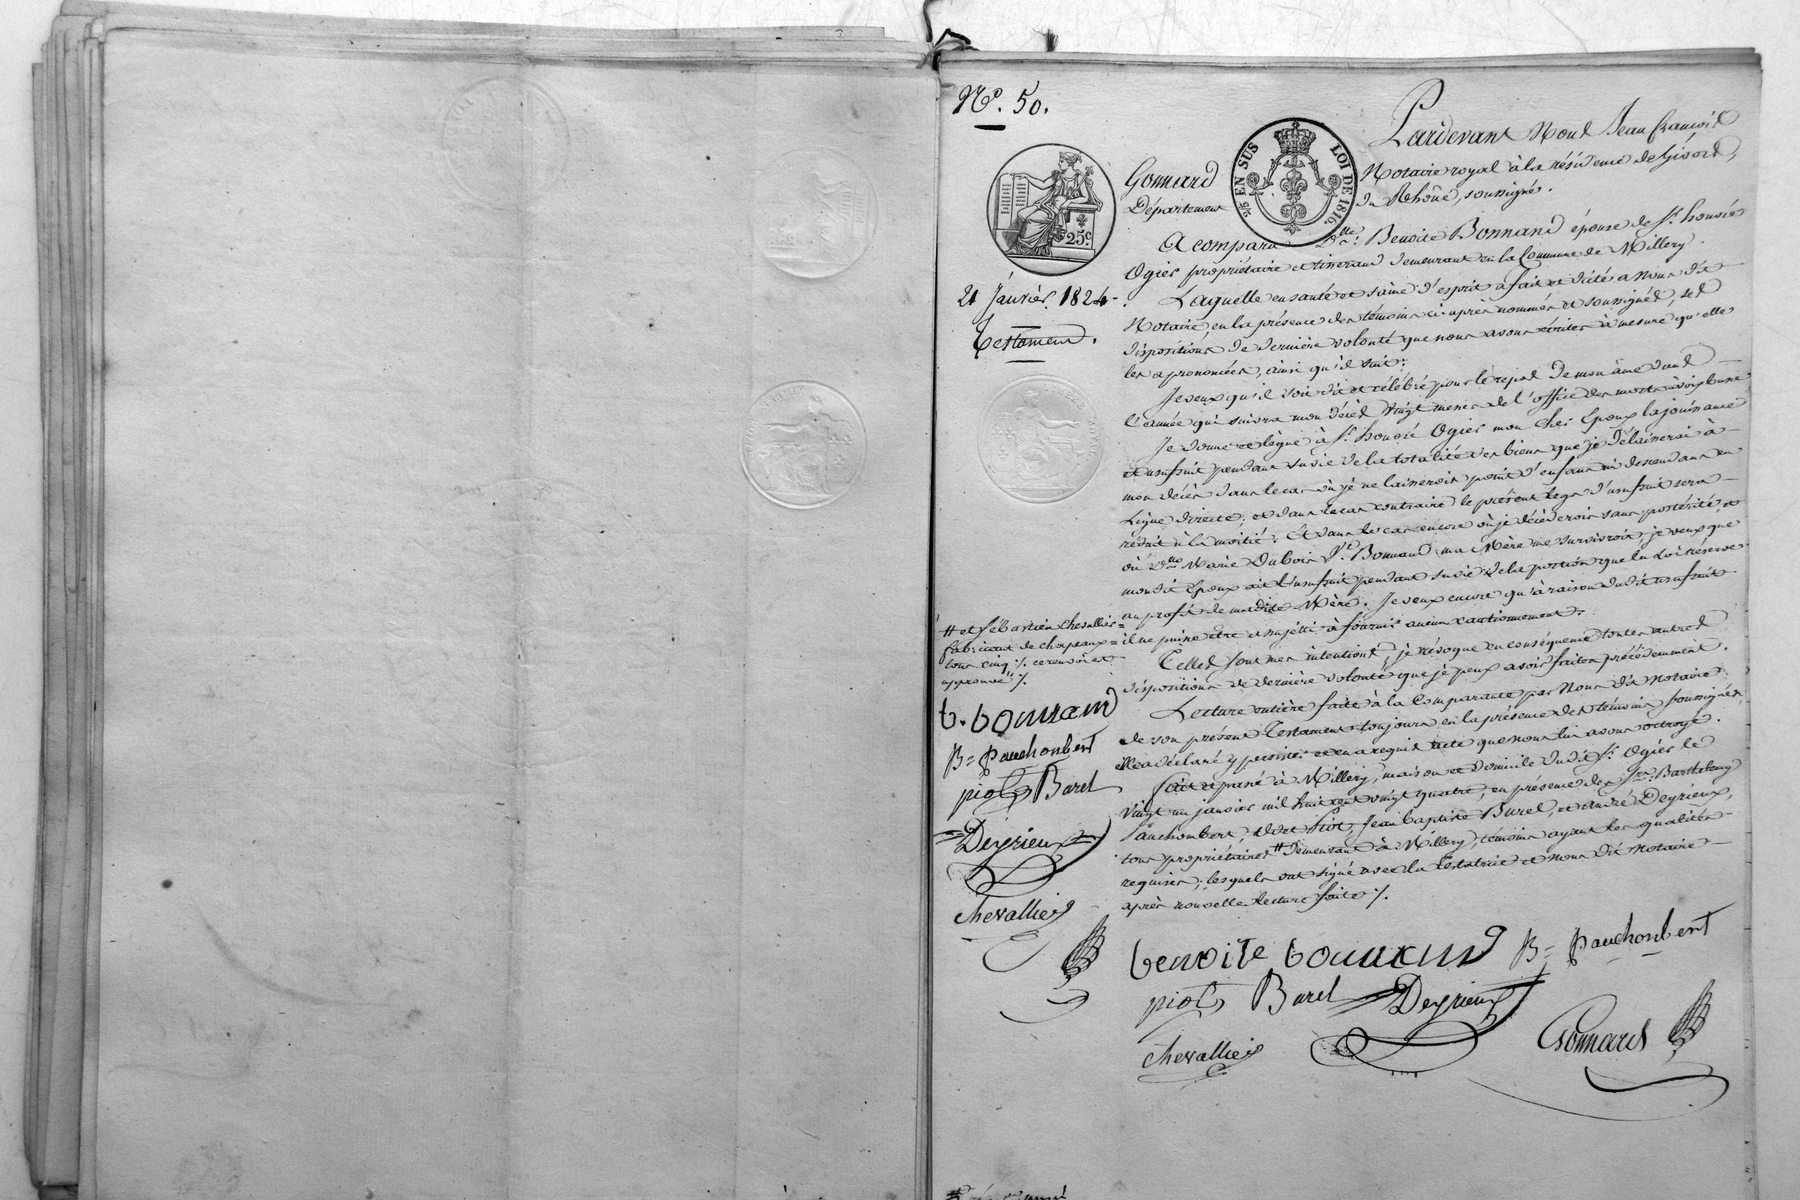 N.° 50.
Pardevant Nous Jean François
Gonnard Notaire royal à la résidence de Givors,
Département du Rhône, soussigné.
25 EN SUS LOI DE 1816.
25c
21 Janvier 1824.
Testament.
A comparu D.lle Benoite Bonnand épouse de S.r honoré
Ogier propriétaire et tisserand demeurant en la Commune de Millery.
Laquelle en santé et saine d'esprit a fait et dicté a nous dit
Notaire, en la présence des témoins ci-après nommés et soussignés, ses
dispositions de dernière volonté que nous avons écrites à mesure qu'elle
les a prononcées, ainsi qu'il suit:
Je veux qu'il soit dit et célébré pour le repos de mon âme dans
l'année qui suivra mon décès vingt messes de l'office des morts à voix basse
Je donne et lègue à S.r honoré Ogier mon cher Epoux la jouissance
et usufruit pendant sa vie de la totalité des biens que je délaisserai à
mon décès dans le cas où je ne laisserois point d'enfans ni descendans en
Ligne directe; et dans le cas contraire le présent legs d'usufruit sera
réduit à la moitié. Et dans le cas encore où je décéderois sans postérité, et
où D.me Marie Dubois V.e Bonnand ma Mère me survivroit, je veux que
mondit Epoux ait l'usufruit pendant sa vie de la portion que la Loi réserve
au profit de madite Mère. Je veux encore qu'à raison dudit usufruit
il ne puisse être assujetti à fournir aucun cautionnement.
Telles sont mes intentions, je révoque en conséquence toutes autres
dispositions de dernière volonté que je peux avoir faites précédemment.
Lecture entière faite à la Comparante par Nous dit Notaire
de son présent Testament toujours en la présence des témoins soussignés,
elle a déclaré y persister et en a requis acte que nous lui avons octroyé.
Fait et passé à Millery, maison et domicile dudit S.r Ogier le
vingt un janvier mil huit cent vingt quatre, en présence des S.rs Barthelemy
Pauchonbert, Piot, Jean Baptiste Burel, et andré Deyrieux,
tous propriétaires # demeurant à Millery, témoins ayant les qualités
requises, lesquels ont signé avec la Testatrice et nous dit Notaire
après nouvelle lecture faite ./.
# et Sébastien Chevallier
fabricant de chapeaux
tous cinq ./. ce renvoi est
approuvé ./.
b. bonnand
B= Pauchonbert
piot Burel
Deyrieux
chevallier
benoite bonnand B= Pauchonbert
piot Burel Deyrieux
chevallier Gonnard